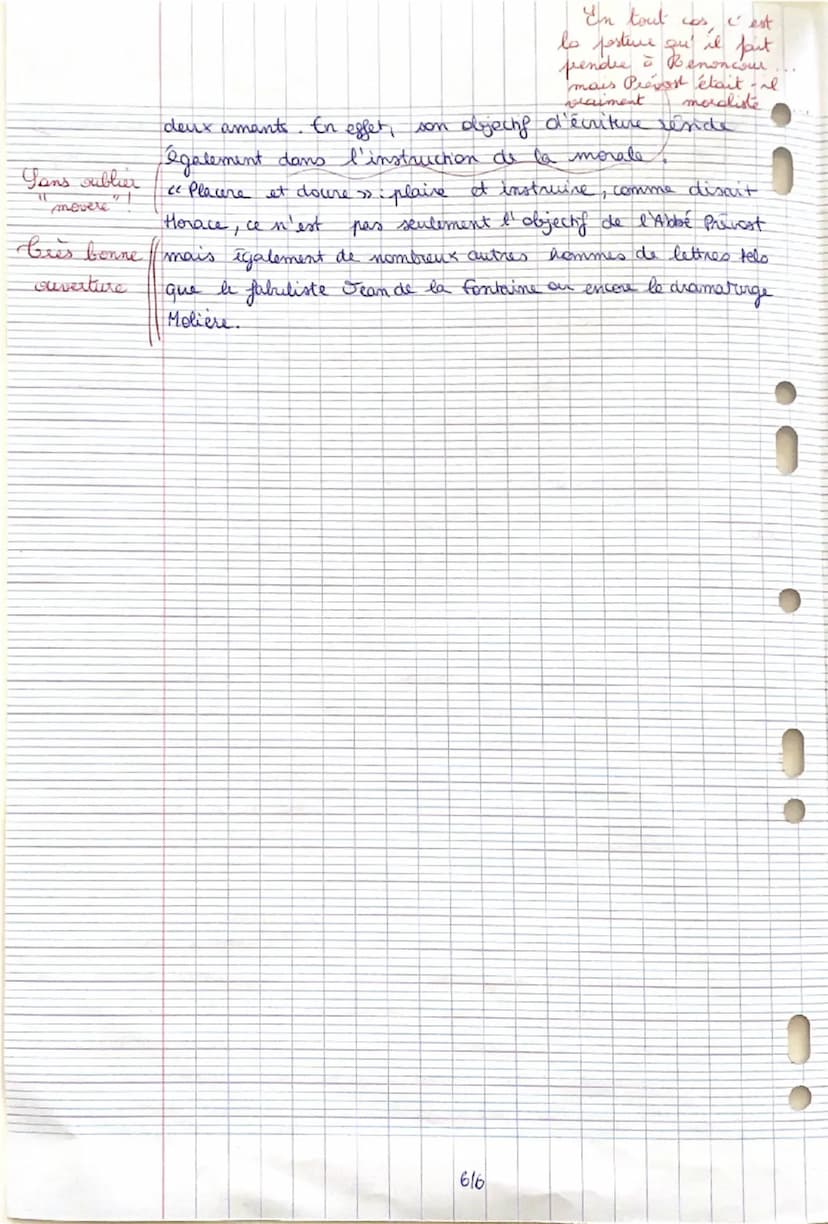 En tout cas, c'est
la posture qu'il fait
prendre à Renoncour...
mais Prévost était-il
vraiment moraliste
deux amants. En effet, son objectif d'écriture réside
également dans l'instruction de la morale.
Sans oublier
"movere"!
« Placere et docere » : plaire et instruire, comme disait
Horace, ce n'est pas seulement l'objectif de l'Abbé Prévost
Très bonne
ouverture
mais également de nombreux autres hommes de lettres tels
que le fabuliste Jean de la Fontaine ou encore le dramaturge
Molière.
6/6